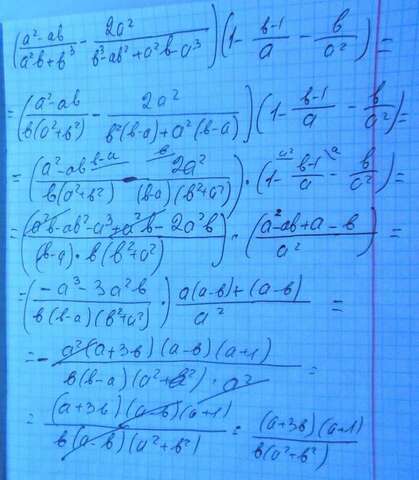 (a²-ab / a²b+b³ - 2a² / b³-ab²+a²b-a³)(1 - b-1 / a - b / a²) =
= (a²-ab / b(a²+b²) - 2a² / b²(b-a)+a²(b-a))(1 - b-1 / a - b / a²) =
= (a²-ab / b(a²+b²) - 2a² / (b-a)(b²+a²)) · (1 - b-1 / a - b / a²) =
= (a²b-ab²-a³+a²b-2a²b / (b-a)·b(b²+a²)) · (a²-ab+a-b / a²) =
= (-a³-3a²b / b(b-a)(b²+a²)) · a(a-b)+(a-b) / a² =
= - a²(a+3b)(a-b)(a+1) / b(b-a)(a²+b²)·a² =
= (a+3b)(a-b)(a+1) / b(a-b)(a²+b²) = (a+3b)(a+1) / b(a²+b²)